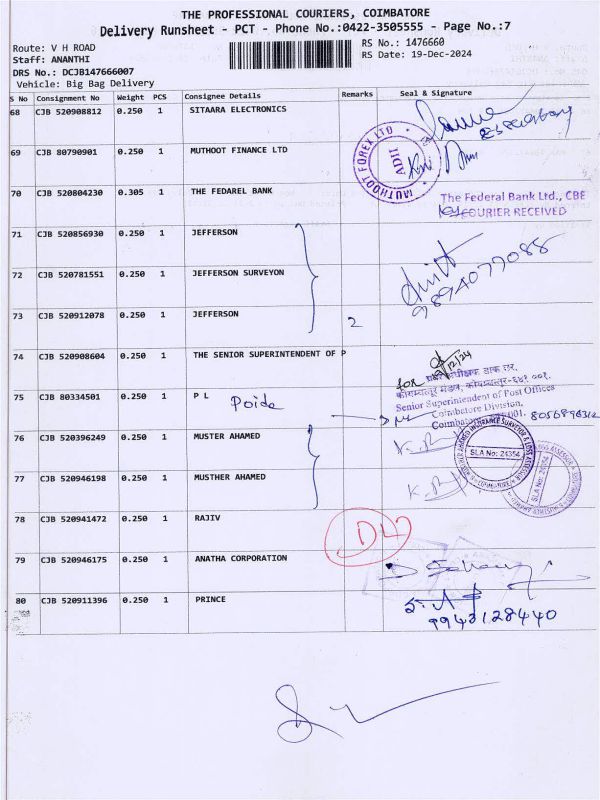 THE PROFESSIONAL COURIERS, COIMBATORE
Delivery Runsheet - PCT - Phone No.:0422-3505555 - Page No.:7
Route: V H ROAD
Staff: ANANTHI
DRS No.: DCJB147666007
Vehicle: Big Bag Delivery
RS No.: 1476660
RS Date: 19-Dec-2024
S No Consignment No Weight PCS Consignee Details Remarks Seal & Signature
68 CJB 520908812 0.250 1 SITAARA ELECTRONICS
69 CJB 80790901 0.250 1 MUTHOOT FINANCE LTD
MUTHOOT FOREX LTD
70 CJB 520804230 0.305 1 THE FEDAREL BANK
The Federal Bank Ltd., CBE
COURIER RECEIVED
71 CJB 520856930 0.250 1 JEFFERSON
72 CJB 520781551 0.250 1 JEFFERSON SURVEYON
9894077088
73 CJB 520912078 0.250 1 JEFFERSON 2
74 CJB 520908604 0.250 1 THE SENIOR SUPERINTENDENT OF P
for
12/24
कोयम्बत्तूर मंडल, कोयम्बत्तूर-६४१ ००१.
Senior Superintendent of Post Offices
Coimbatore Division,
75 CJB 80334501 0.250 1 P L
8056896312
76 CJB 520396249 0.250 1 MUSTER AHAMED
SLA No: 24354
77 CJB 520946198 0.250 1 MUSTHER AHAMED
SLA No: 24354
78 CJB 520941472 0.250 1 RAJIV
79 CJB 520946175 0.250 1 ANATHA CORPORATION
80 CJB 520911396 0.250 1 PRINCE
9943128440